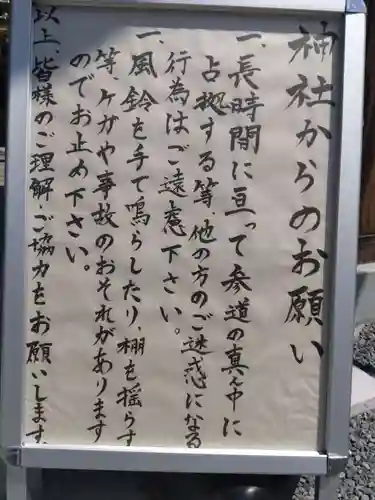 神社からのお願い
一、長時間に亘って参道の真ん中に
占拠する等、他の方のご迷惑になる
行為はご遠慮下さい。
一、風鈴を手で鳴らしたり、棚を揺らす
等、ケガや事故のおそれがあります
のでお止め下さい。
以上、皆様のご理解・ご協力をお願いします。